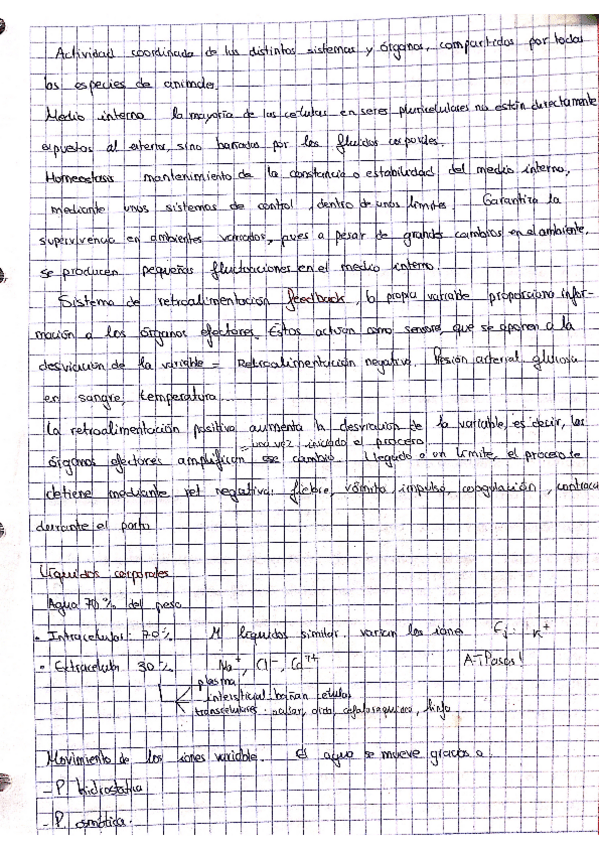 Actividad coordinada de los distintos sistemas y órganos, compartidos por todas
las especies de animales.
Medio interno la mayoría de las celulas en seres pluricelulares no están directamente
expuestos al exterior, sino bañados por los fluidos corporales.
Homeostasis mantenimiento de la constancia o estabilidad del medio interno,
mediante unos sistemas de control, dentro de unos límites Garantiza la
supervivencia en ambientes variados, pues a pesar de grandes cambios en el ambiente,
se producen pequeñas fluctuaciones en el medio interno.
Sistema de retroalimentación feedback, la propia variable proporciona infor-
mación a los órganos efectores. Estos actúan como sensores, que se oponen a la
desviación de la variable = Retroalimentación negativa. Presión arterial, glucosa
en sangre, temperatura
La retroalimentación positiva aumenta la desviación de la variable, es decir, los
= una vez iniciado el proceso
órganos efectores amplifican ese cambio Llegado a un límite, el proceso se
detiene mediante ret negativa. fiebre, vómito, impulso, coagulación, contracc
durante el parto
Líquidos corporales
Agua 70% del peso
- Intracelular: 70% líquidos similar. varian los iones Ej. K+
- Extracelular 30% Na+, Cl-, Ca2+ ATPasas!
plasma
intersticial: bañan celulas
transcelulares: cefalorraquideo, linfa
Movimiento de los iones variable. El agua se mueve gracias a
- P. hidrostática
- P. osmótica.